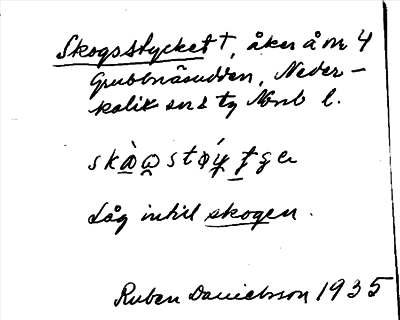 Skogsstycket †, åker å nr 4
Grubbnäsudden, Neder-
kalix sn & tg Nbnl l.
Låg intill skogen.
Ruben Danielsson 1935